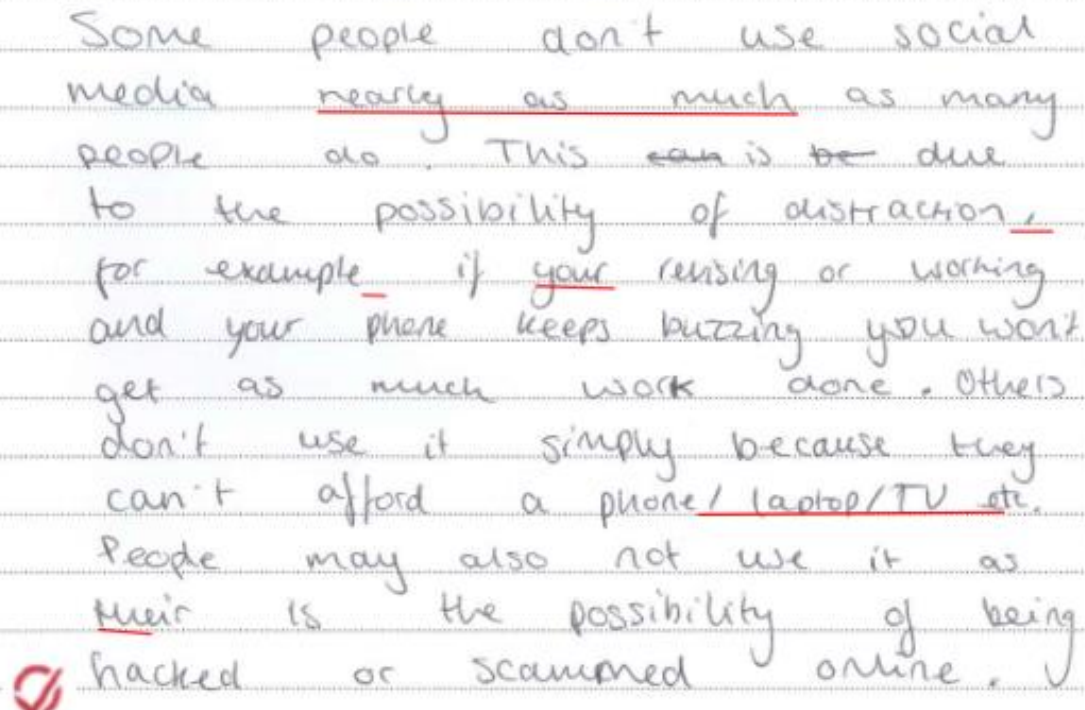 Some people don't use social
media nearly as much as many
people do. This can is be due
to the possibility of distraction,
for example if your revising or working
and your phone keeps buzzing you won't
get as much work done. Others
don't use it simply because they
can't afford a phone/laptop/TV etc.
People may also not use it as
their is the possibility of being
hacked or scammed online.